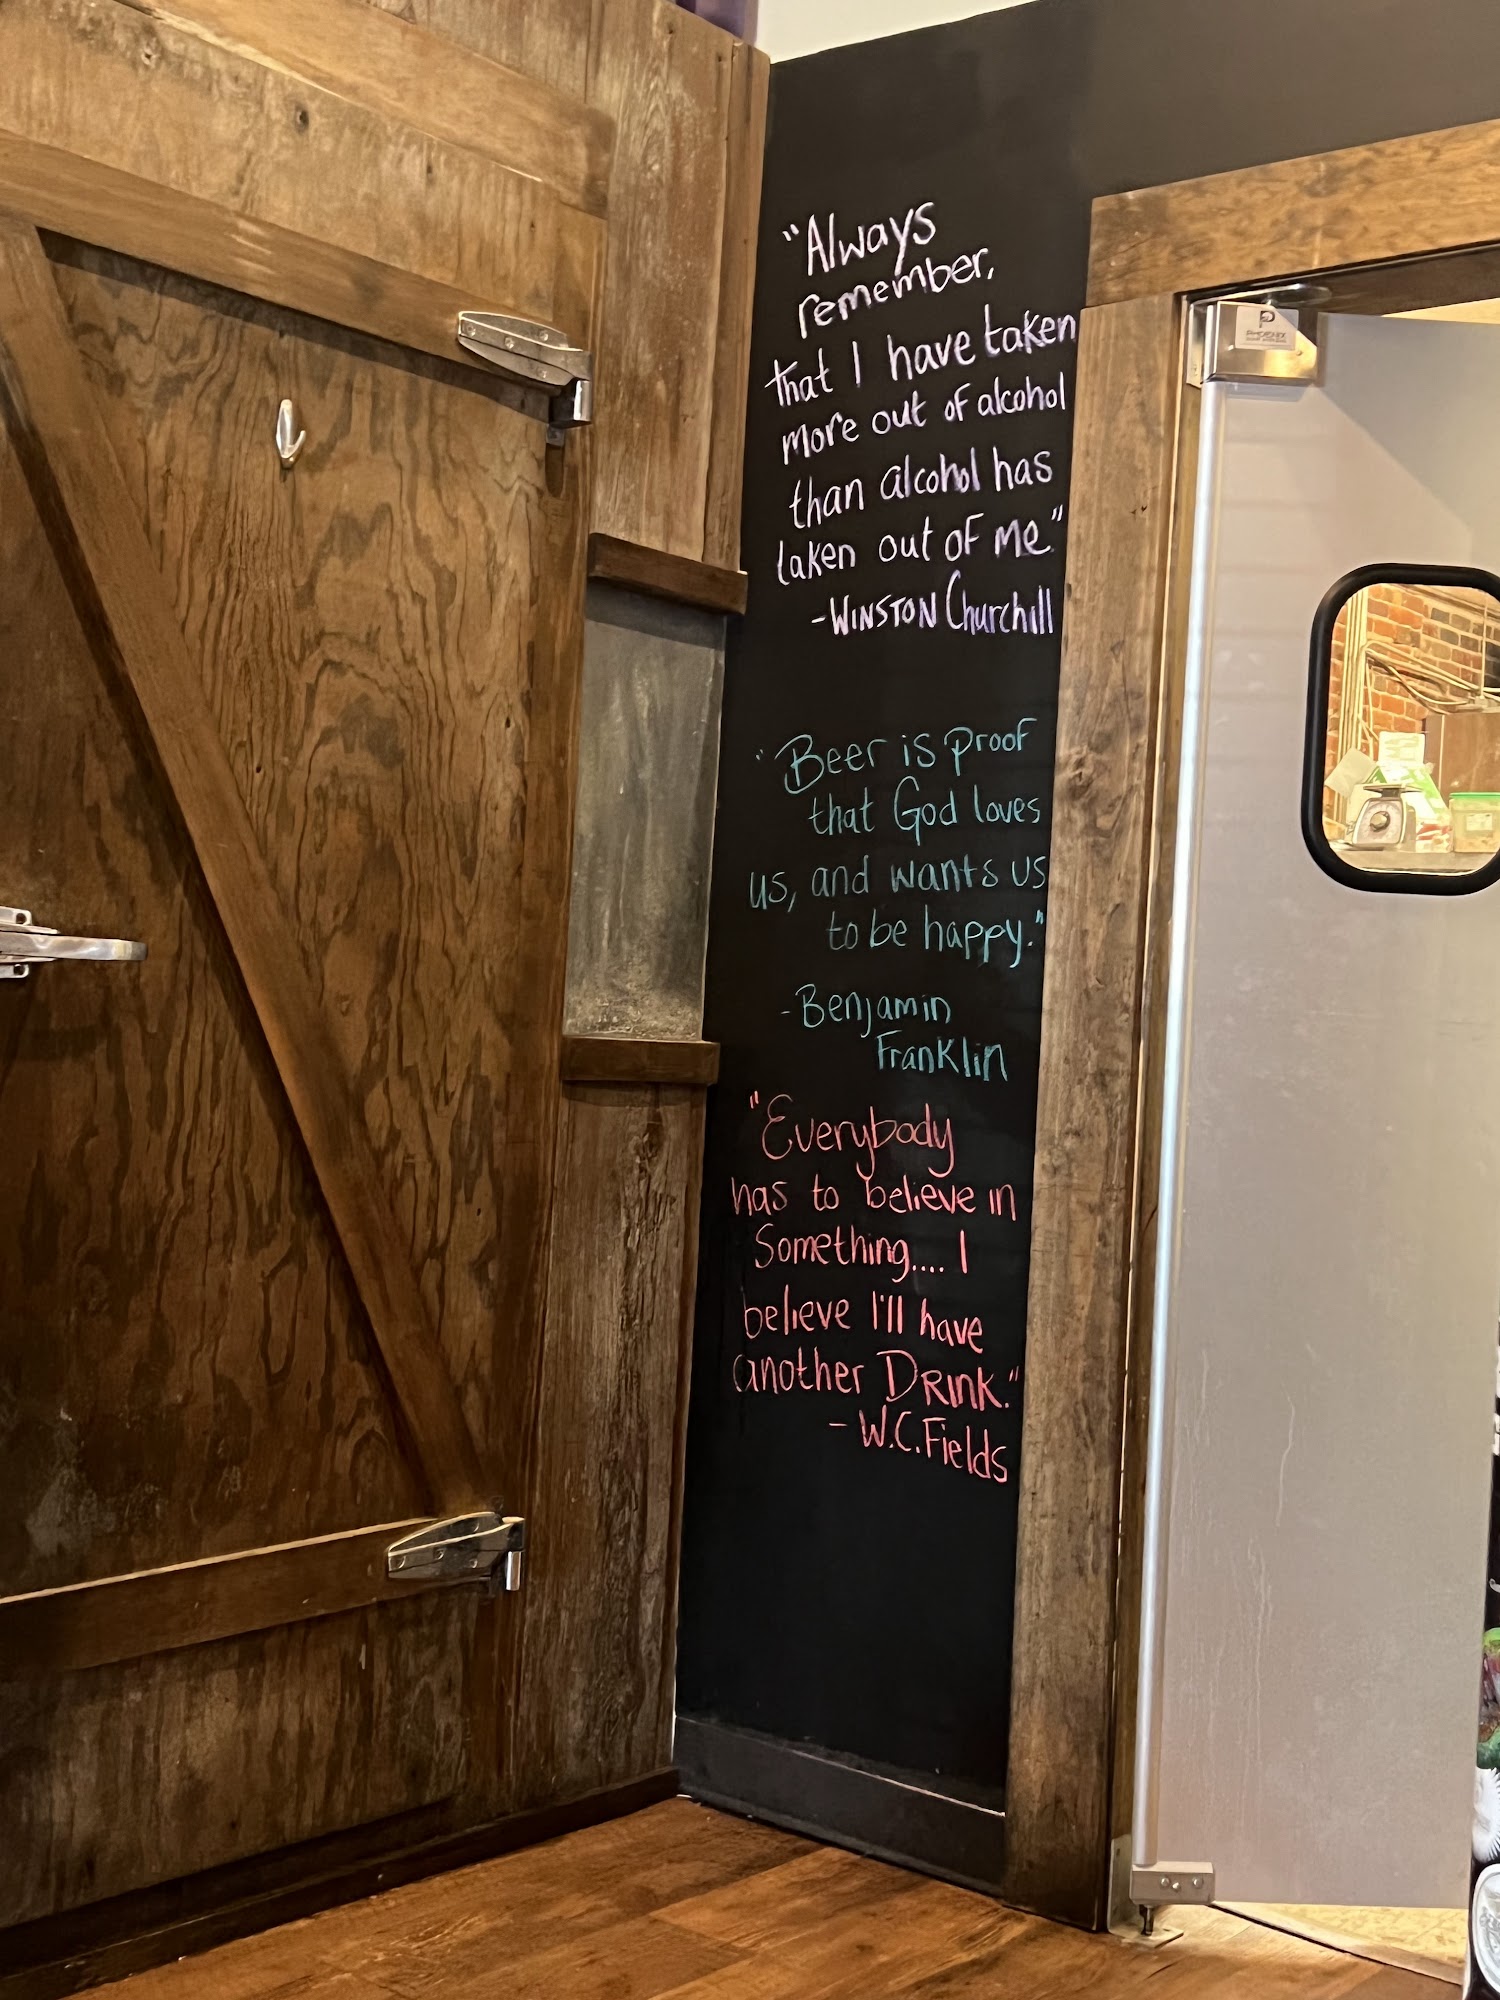 "Always
remember,
that I have taken
more out of alcohol
than alcohol has
taken out of me."
-WINSTON Churchill
"Beer is proof
that God loves
us, and wants us
to be happy."
-Benjamin
Franklin
"Everybody
has to believe in
Something.... I
believe I'll have
another DRINK."
- W.C. Fields
PHOENIX